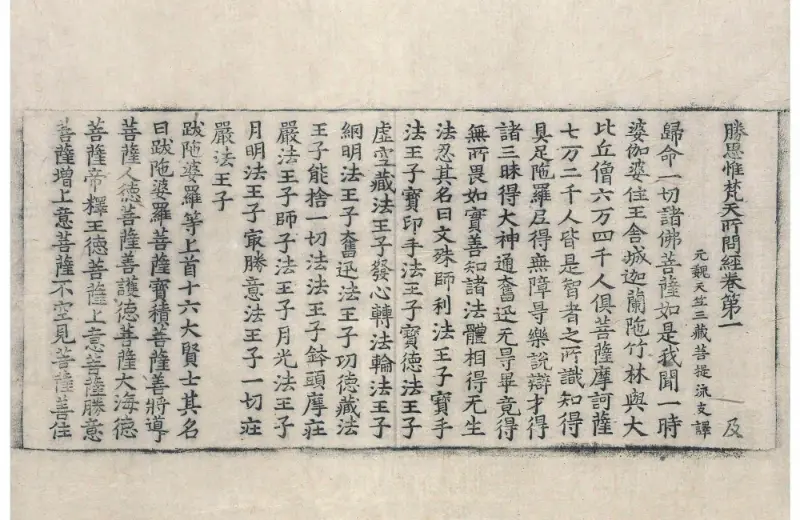 勝思惟梵天所問經卷第一 及
元魏天竺三藏菩提流支譯
歸命一切諸佛菩薩如是我聞一時
婆伽婆住王舍城迦蘭陁竹林與大
比丘僧六万四千人俱菩薩摩訶薩
七万二千人皆是智者之所識知得
具足陁羅尼得無障导樂說辯才得
諸三昧得大神通奮迅无导畢竟得
無所畏如實善知諸法體相得无生
法忍其名曰文殊師利法王子寶手
法王子寶印手法王子寶德法王子
虛空藏法王子發心轉法輪法王子
網明法王子奮迅法王子功德藏法
王子能捨一切法法王子鉢頭摩莊
嚴法王子師子法王子月光法王子
月明法王子㝡勝意法王子一切莊
嚴法王子
跋陁婆羅等上首十六大賢士其名
曰跋陁婆羅菩薩寶積菩薩善將導
菩薩人德菩薩善護德菩薩大海德
菩薩帝釋王德菩薩上意菩薩勝意
菩薩增上意菩薩不空見菩薩善住